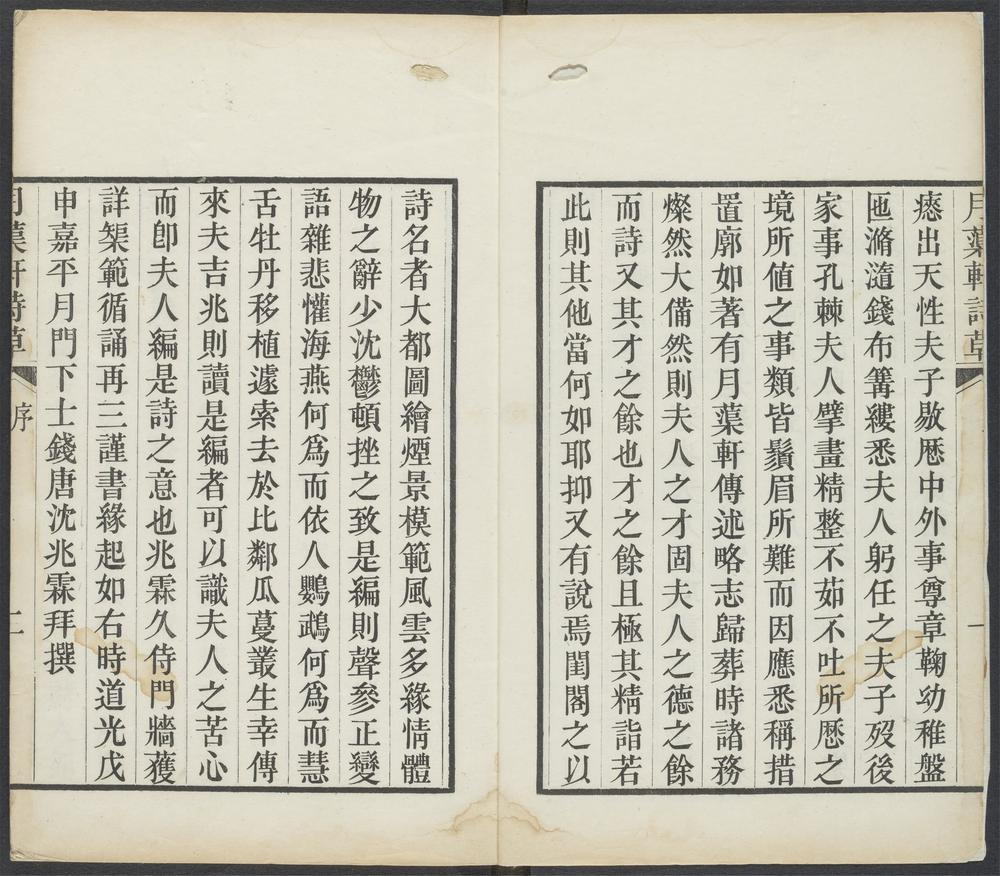 月蕖軒詩草
一
瘱出天性夫子敭歷中外事尊章鞠幼稚盤
匜滫瀡錢布篝縷悉夫人躬任之夫子歿後
家事孔棘夫人擘畫精整不茹不吐所歷之
境所値之事類皆鬚眉所難而因應悉稱措
置廓如著有月蕖軒傳述略志歸葬時諸務
燦然大備然則夫人之才固夫人之德之餘
而詩又其才之餘也才之餘且極其精詣若
此則其他當何如耶抑又有說焉閨閣之以
詩名者大都圖繪煙景模範風雲多緣情體
物之辭少沈鬱頓挫之致是編則聲參正變
語雜悲懽海燕何爲而依人鸚鵡何爲而慧
舌牡丹移植遽索去於比鄰瓜蔓叢生幸傳
來夫吉兆則讀是編者可以識夫人之苦心
而卽夫人編是詩之意也兆霖久侍門牆獲
詳榘範循誦再三謹書緣起如右時道光戊
申嘉平月門下士錢唐沈兆霖拜撰
月蕖軒詩草
序
二